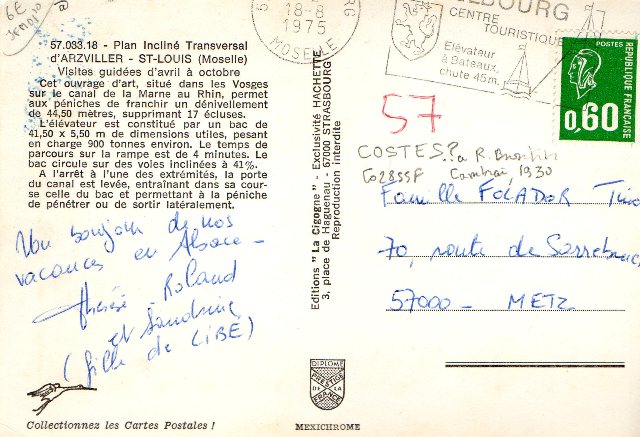 6E
57.033.18 - Plan Incliné Transversal
d'ARZVILLER - ST-LOUIS (Moselle)
Visites guidées d'avril à octobre
Cet ouvrage d'art, situé dans les Vosges
sur le canal de la Marne au Rhin, permet
aux péniches de franchir un dénivellement
de 44,50 mètres, supprimant 17 écluses.
L'élévateur est constitué par un bac de
41,50 x 5,50 m de dimensions utiles, pesant
en charge 900 tonnes environ. Le temps de
parcours sur la rampe est de 4 minutes. Le
bac circule sur des voies inclinées à 41%.
A l'arrêt à l'une des extrémités, la porte
du canal est levée, entraînant dans sa cour-
se celle du bac et permettant à la péniche
de pénétrer ou de sortir latéralement.
Un bonjour de nos
vacances en Alsace -
Thérèse - Roland
et Sandrine
(fille de LIBE)
Collectionnez les Cartes Postales !
Editions "La Cigogne" - Exclusivité HACHETTE
3, place de Haguenau - 67000 STRASBOURG
Reproduction interdite
DIPLOME
PRESTIGE
DE LA
FRANCE
MEXICHROME
18-8
1975
MOSELLE
BOURG
CENTRE
TOURISTIQUE
Elévateur
à Bateaux
chute 45m.
POSTES
0,60
REPUBLIQUE FRANCAISE
57
COSTES ? a R.
Cambrai, 1930
Famille FOLADOR Tino
70, route de Sarrebruck
57000 - METZ